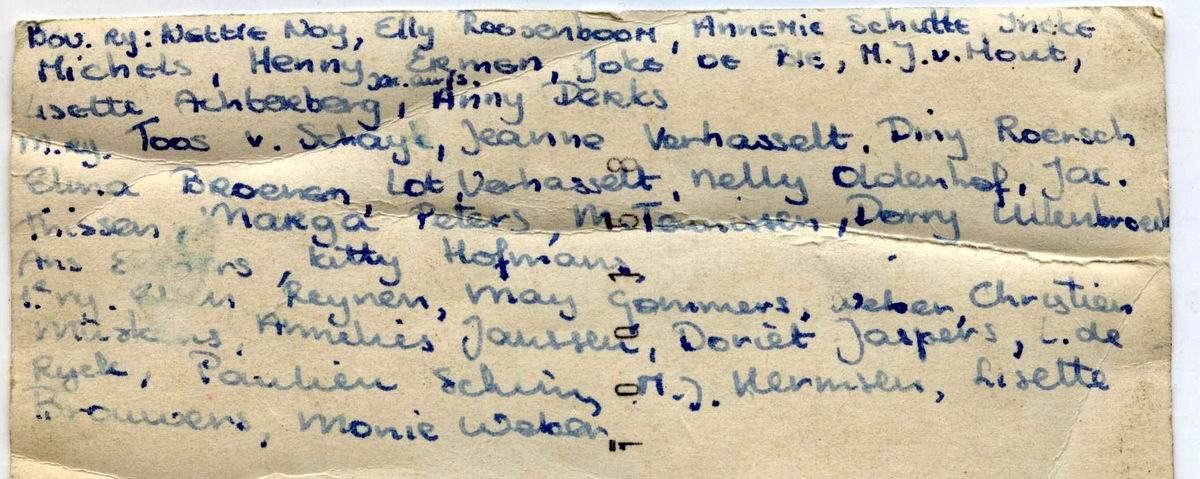 Bov. ry: Nettie Noy, Elly Roosenboom, Annemie Schutte Ineke
Michels, Henny Ermen, Joke de Bie, M.J.v.Hout,
Lisette Achterberg, Anny Derks
M.ry. Toos v. Schayk, Jeanne Verhasselt, Diny Roersch
Elma Broenen, Lot Verhasselt, Nelly Oldenhof, Jac.
Thissen, Marga Peters, Mo Teunissen, Dorry Uilenbroek
Ans, Kitty Hofmans,
Reynen, May Gommers, Weber, Christien
Muskens, Annelies Janssen, Dorièt Jaspers, L. de
Ryck, Paulien Schim, M.J. Hermsen, Lisette
Brouwers, Monie Weber